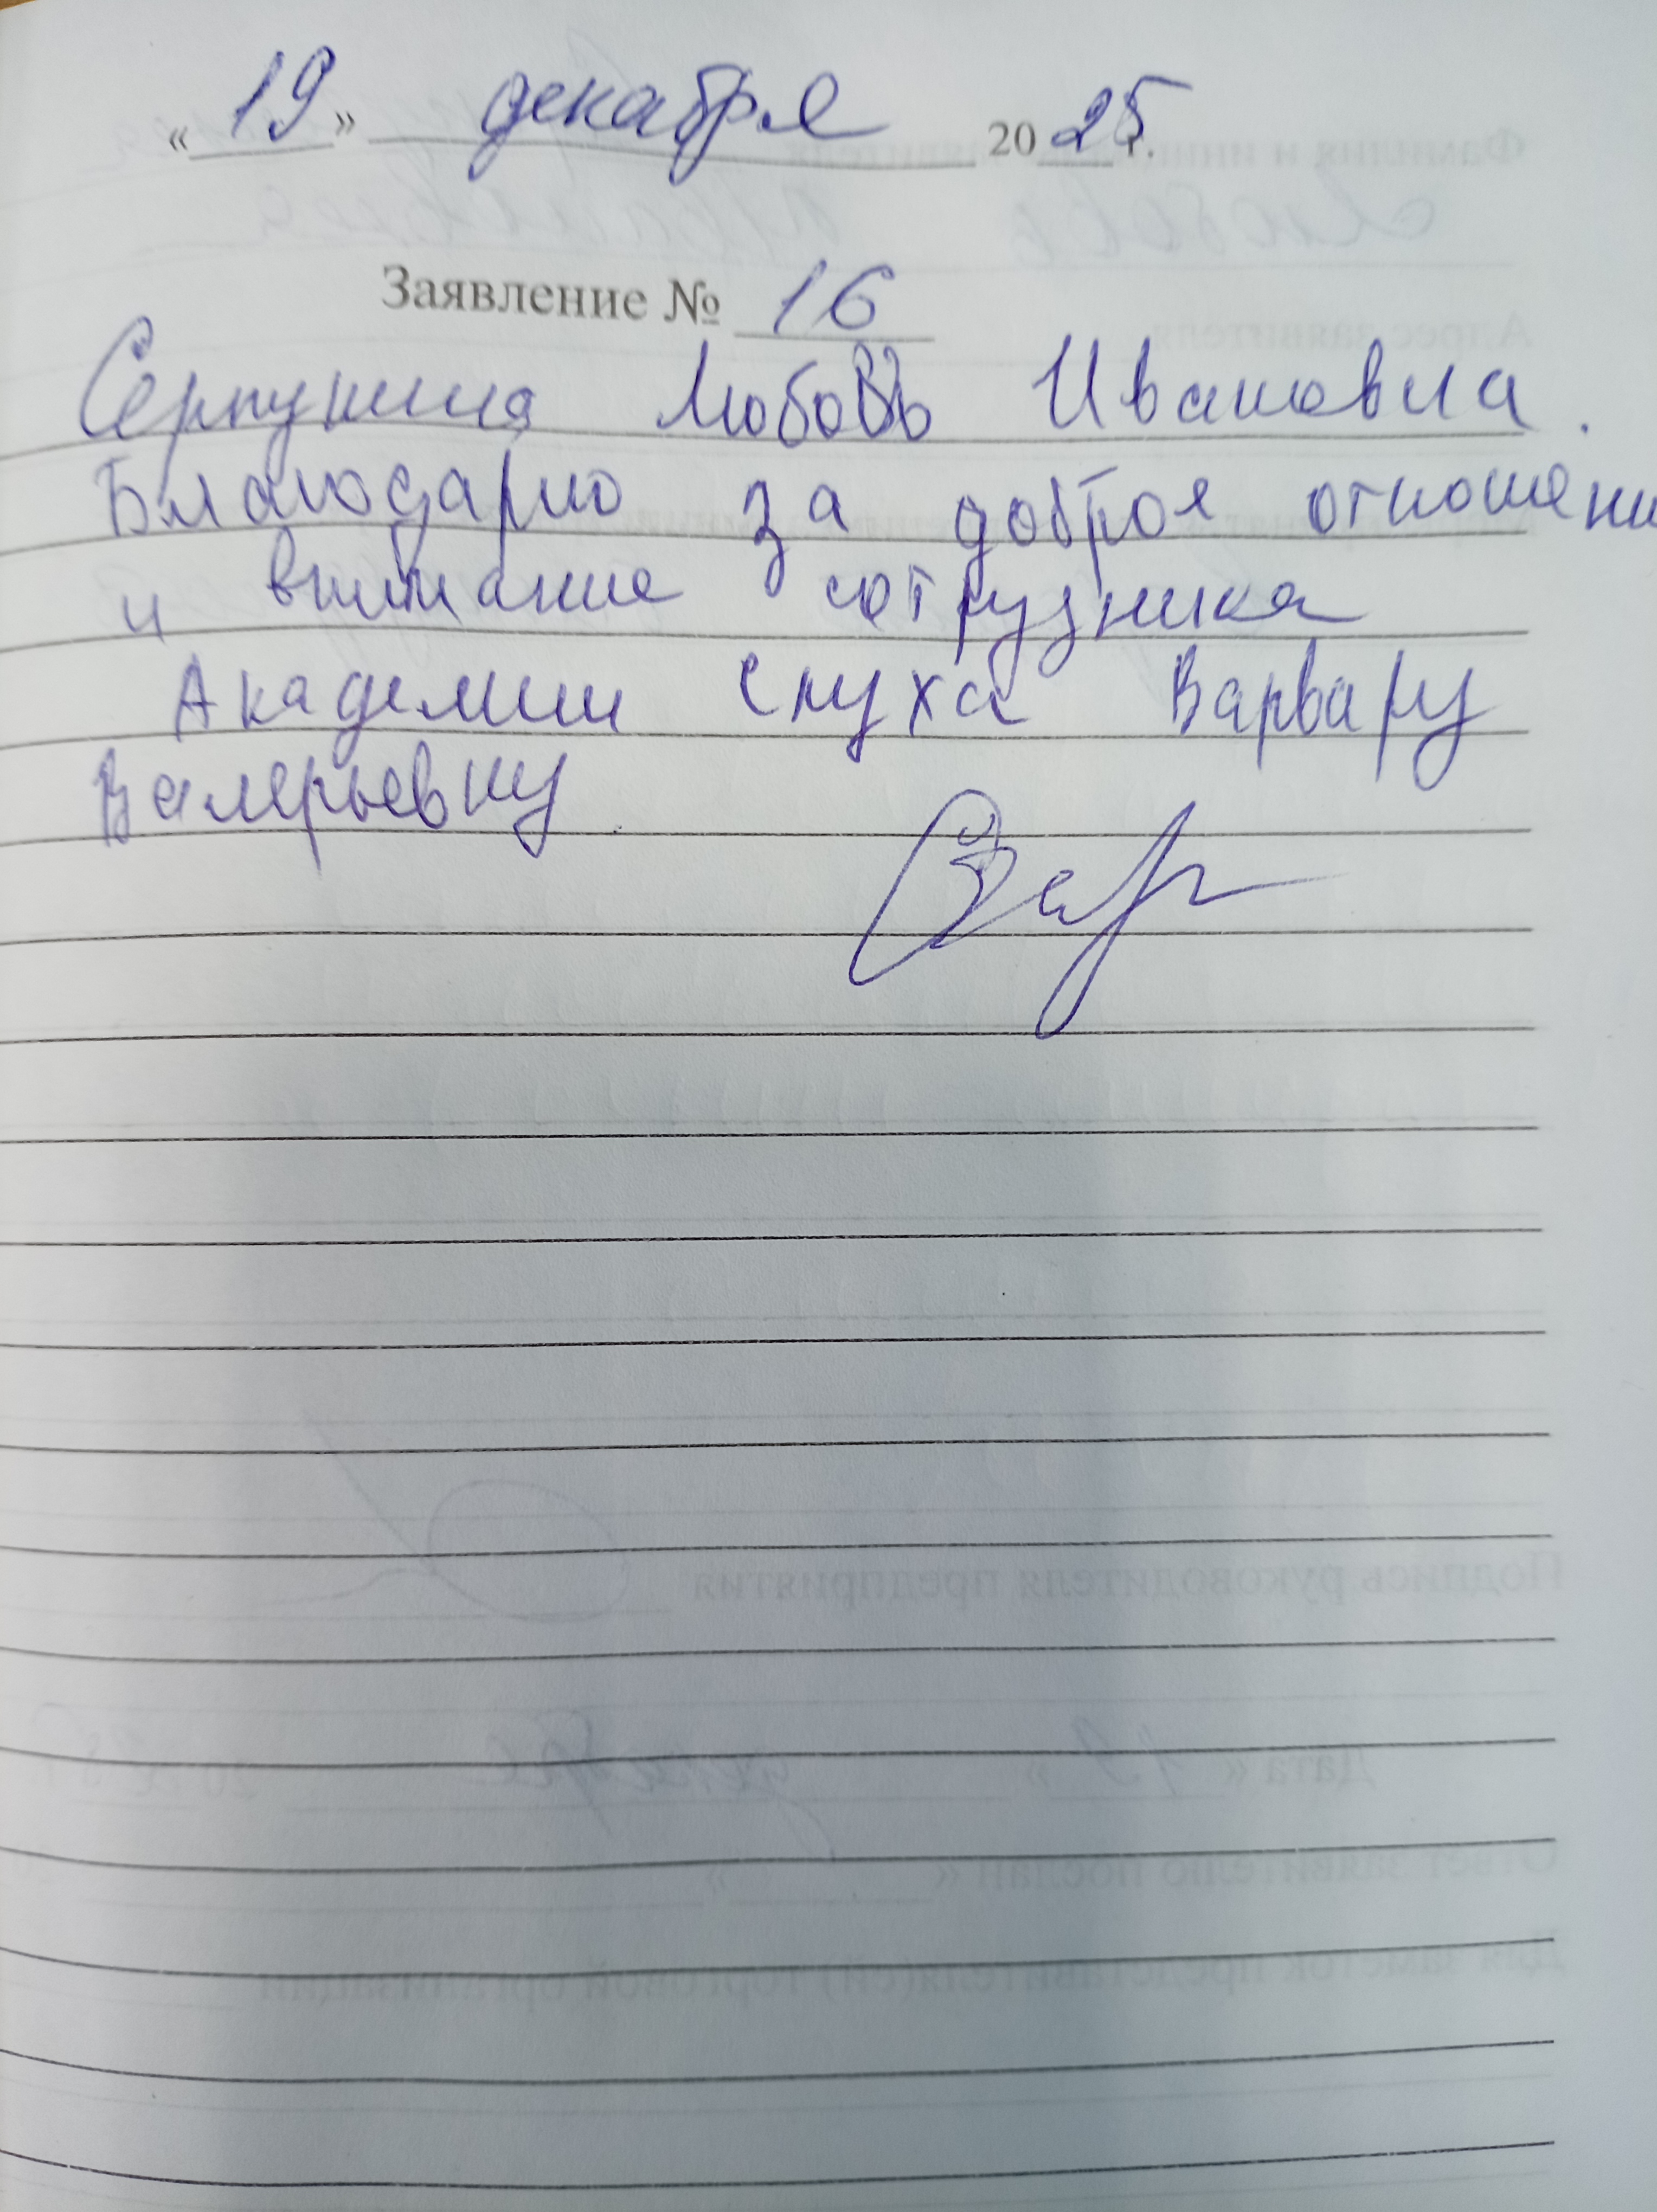 «19» декабря 2025 г.
Заявление № 16
Серпунина Любовь Ивановна.
Благодарю за доброя отношени
и внимание сотрудника
Академии слуха Варвару
Валерьевну.